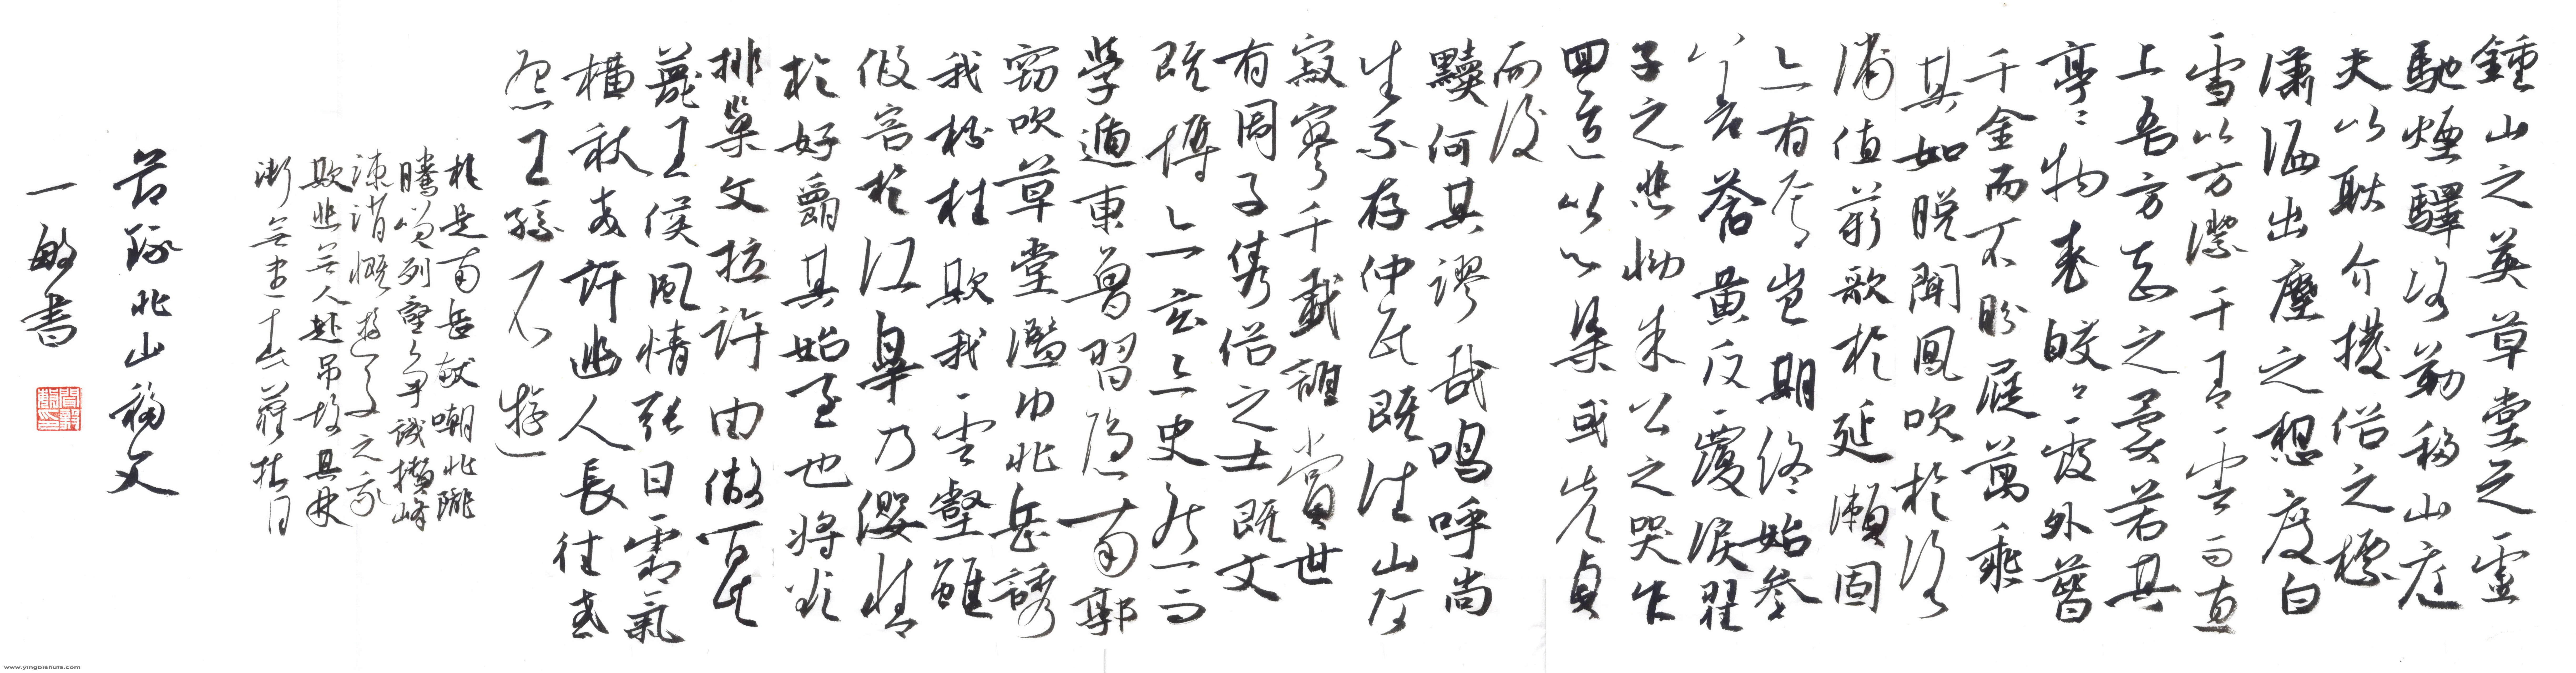 鍾山之英草堂之靈
馳煙驛路勒移山庭
夫以耿介拔俗之標
瀟洒出塵之想度白
雪以方潔干青雲而直
上吾方知之矣若其
亭亭物表皎皎霞外芥
千金而不盼屣萬乘
其如脫聞鳳吹於洛
浦值薪歌於延瀨固
亦有焉豈期終始參
差蒼黃反覆淚翟
子之悲慟朱公之哭乍
迴迹以心染或先貞
而後
黷何其謬哉嗚呼尚
生不存仲氏既往山阿
寂寥千載誰賞世
有周子雋俗之士既文
既博亦玄亦史然而
學遁東魯習隱南郭
竊吹草堂濫巾北岳誘
我松桂欺我雲壑雖
假容於江皋乃纓情
於好爵其始至也將欲
排巢父拉許由傲百氏
蔑王侯風情張日霜氣
橫秋或許幽人長往或
怨王孫不游
於是南岳獻嘲北隴
騰笑列壑爭譏攢峰
竦誚慨遊子之我
欺悲無人赴吊故其林
慚無盡澗
節錄北山移文
一敏書
www.yingbishufa.com